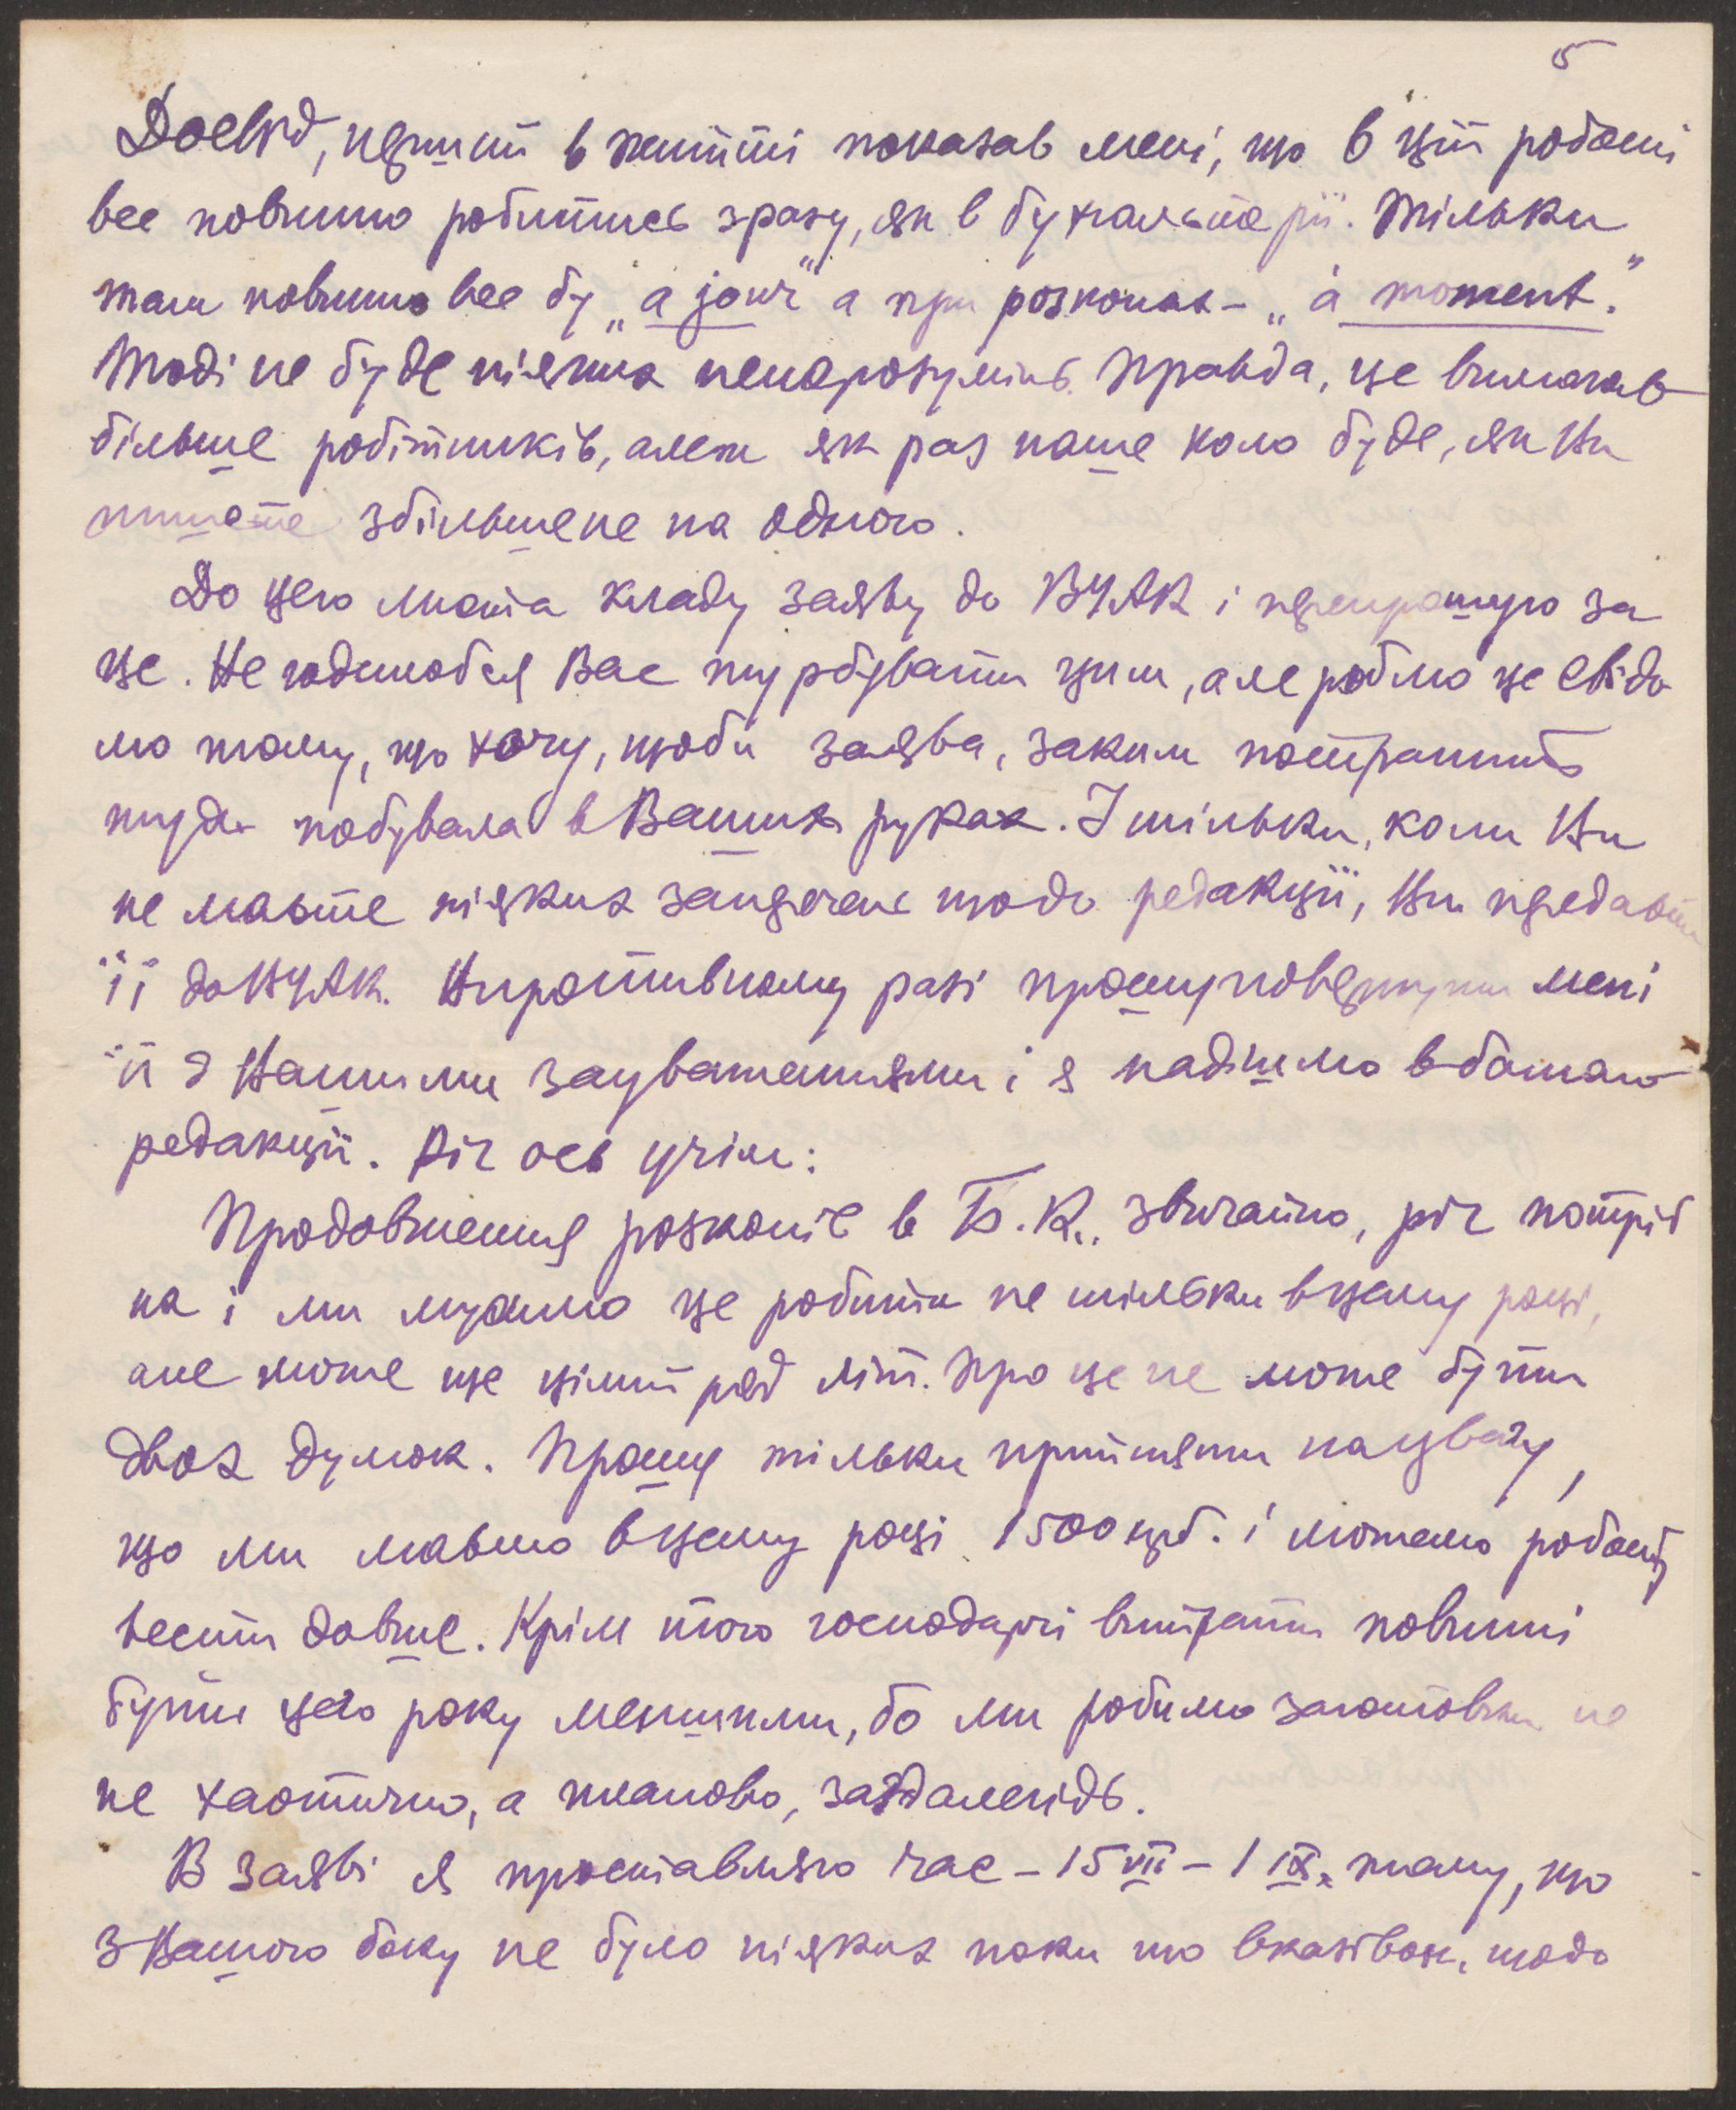 5
Досвід, перший в житті показав мені, що в цій роботі
все повинно робитись зразу, як в бухгальтерії. Тільки
там повинно все бу „a jour“ а при розкопах – „à moment“.
Тоді не буде ніяких непорозумінь. Правда, це вимагає
більше робітників, але ж як раз наше коло буде, як Ви
пишете збільшене на одного.
До цего листа кладу заяву до ВУАК і перепрошую за
це. Не годилобся Вас турбувати цим, але роблю це свідо
мо тому, що хочу, щоби заява, заким потрапить
туди побувала в Ваших руках. І тільки, коли Ви
не маєте ніяких заперечень щодо редакції, Ви передасте
її до ВУАК. В противному разі прошу повернути мені
її з Вашими зауваженнями і я надішлю в бажаній
редакції. Річ ось у чім:
Продовження розкопів в Б.К., звичайно, річ потріб
на і ми мусимо це робити не тільки в цему році,
але може ще цілий ряд літ. Про це не може бути
двох думок. Прошу тільки прийняти на увагу,
що ми маємо в цему році 1500 крб. і можемо роботу
вести довше. Крім того господарчі витрати повинні
бути цего року меншими, бо ми робимо заготовки не
не хаотично, а планово, заздалегідь.
В заяві я проставляю час – 15 VII – 1 IX, тому, що
з Вашого боку не було ніяких поки що вказівок, щодо